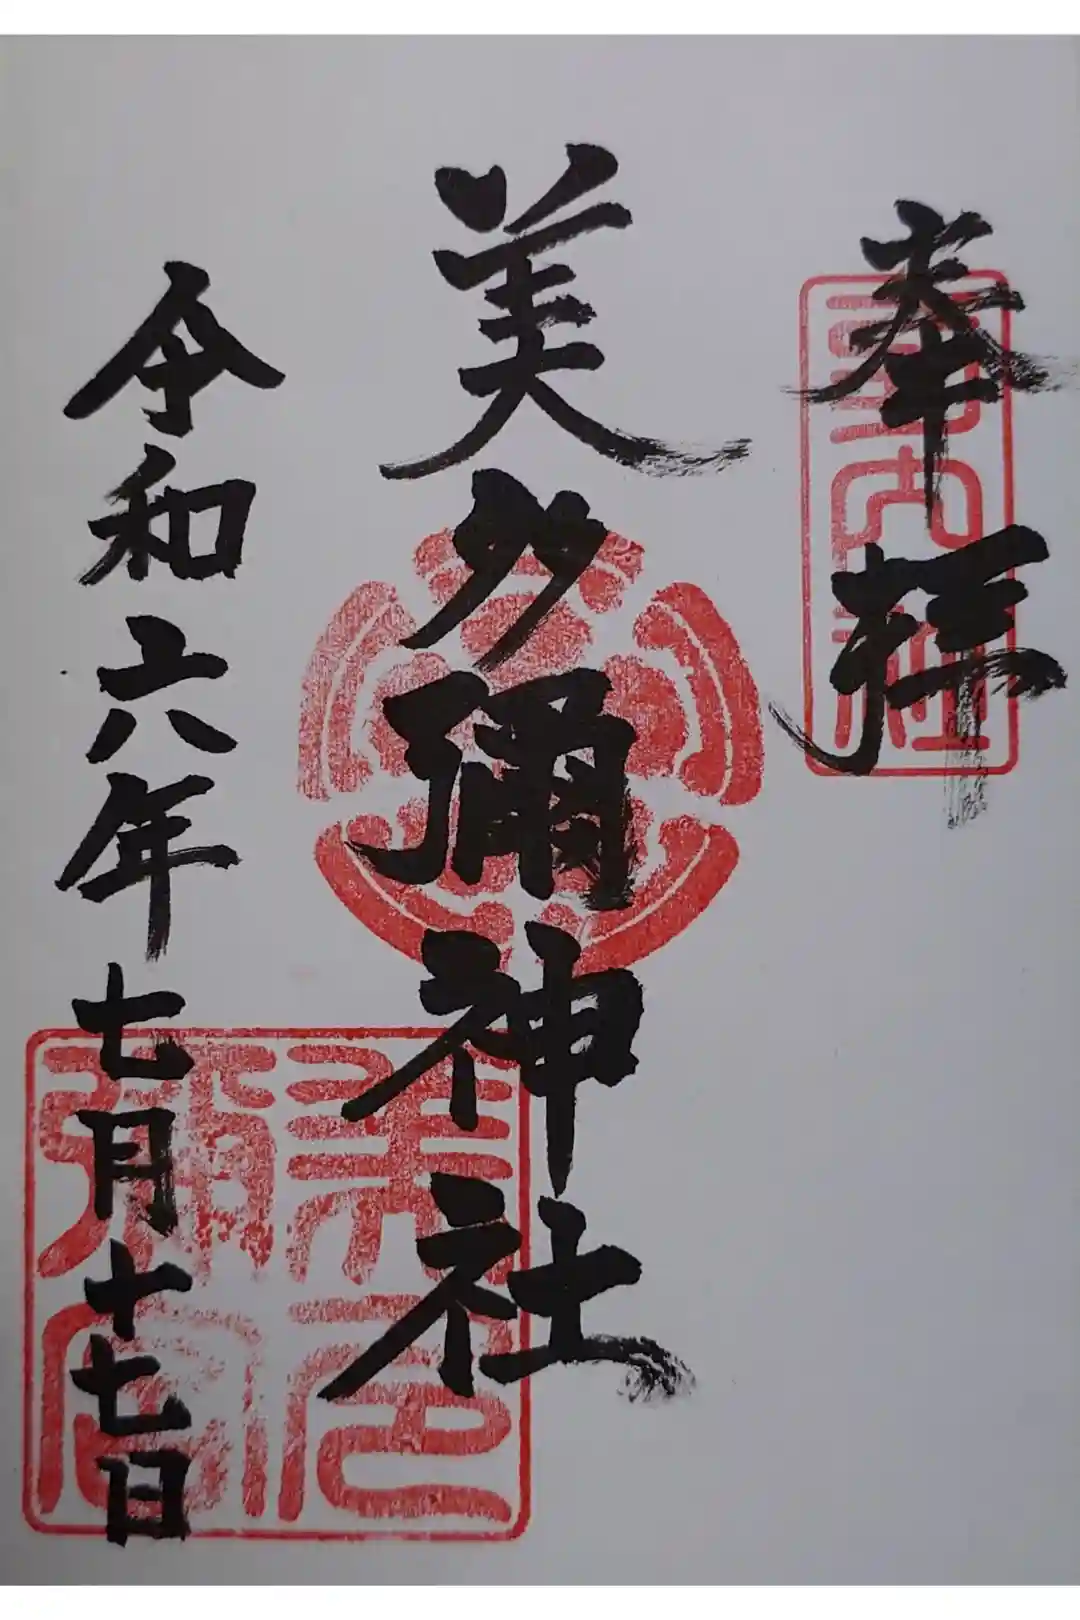 奉拝
美多彌神社
令和六年七月十七日
式内社